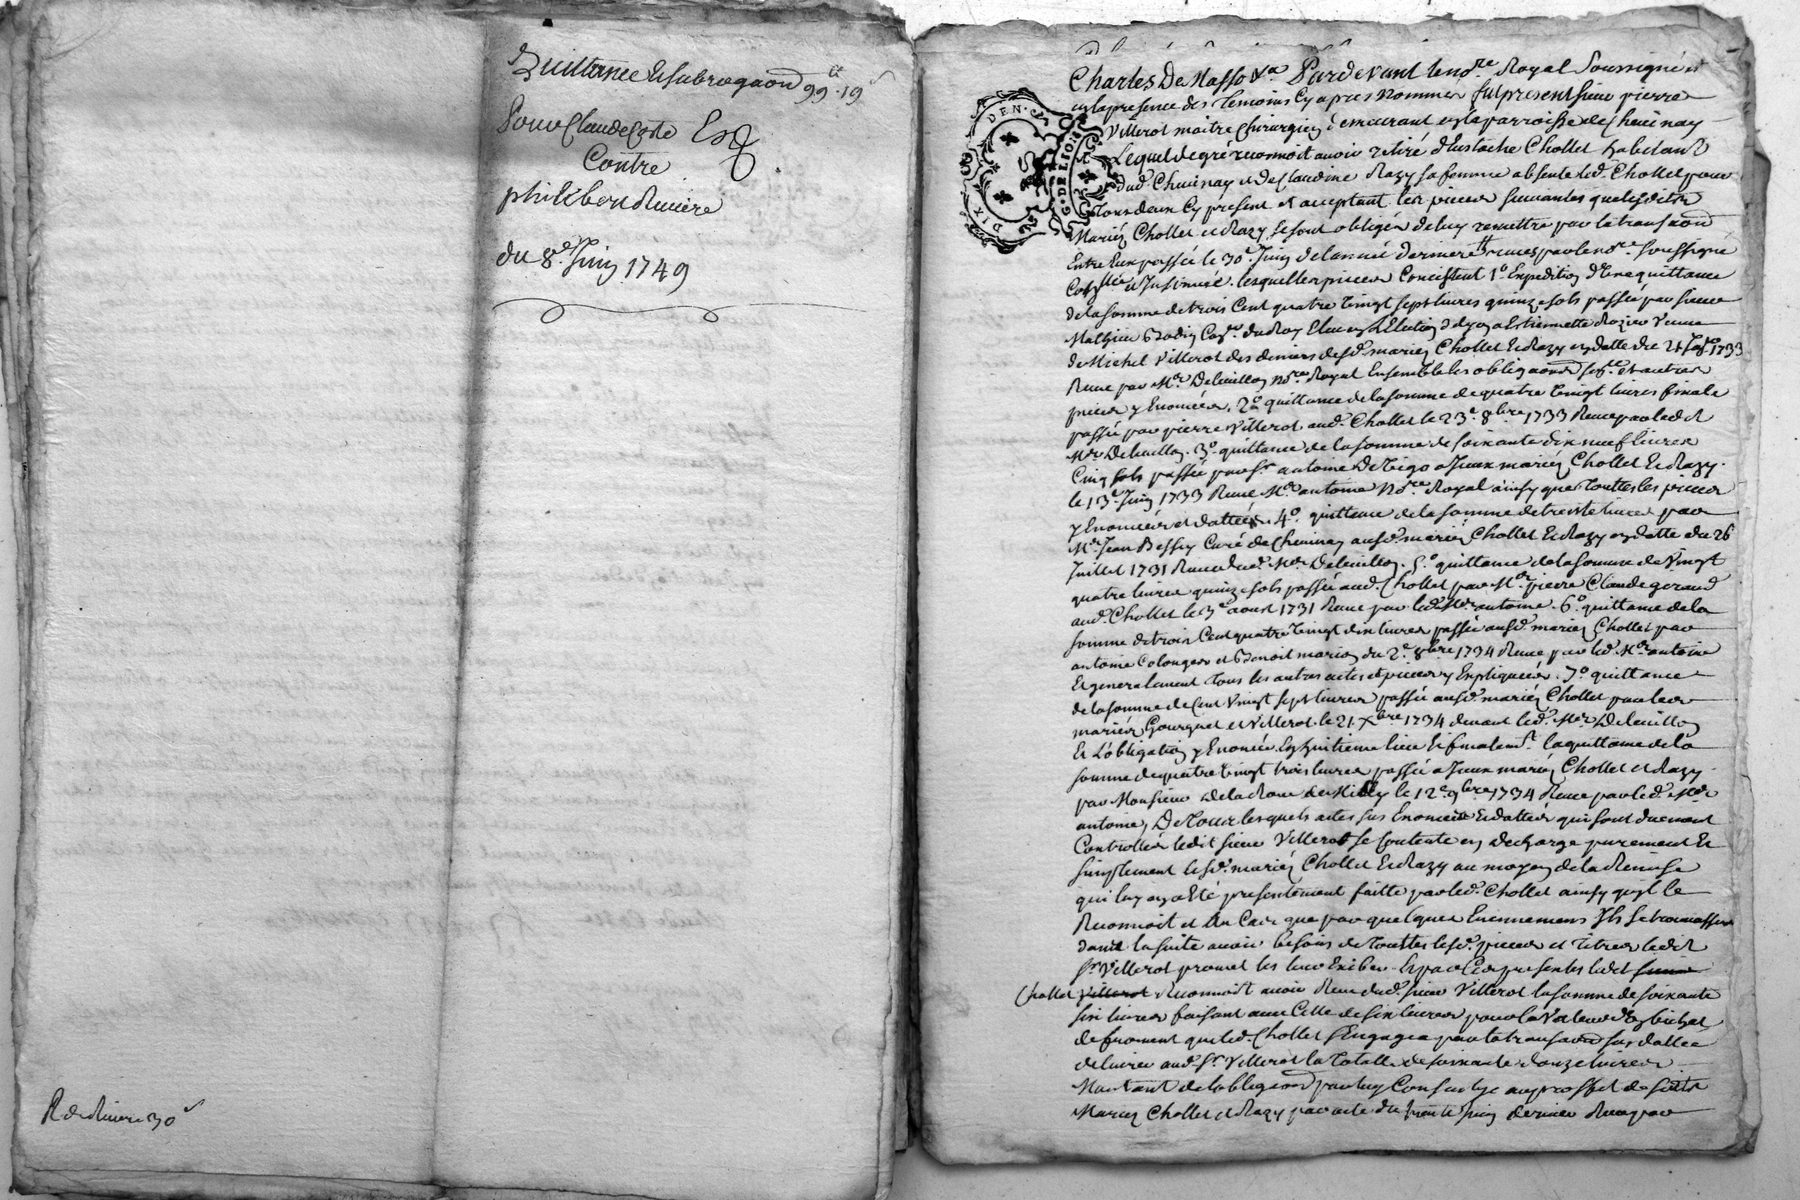 Quittance & subrogaon 99tt.19s
Pour Claude Coste Esq
Contre
philibert Riviere
du 8e Juin 1749
R de Riviere 30s
Charles De Masso &a Pardevant le nore Royal Soussigné et
en la presence des temoins Cy apres Nommes fut present sieur pierre
Villerot maitre Chirurgien demeurant en la parroisse de Chevinay
Lequel de gré reconnoit avoir retiré d'Eustache Chollet habitant
dud. Chevinay et de Claudine Razy sa femme absente led. Chollet pour
tous deux Cy present et acceptant les pieces suivantes que lesdits
Mariés Chollet et Razy se sont obligés de luy remettre par la transaon
Entre Eux passée le 30e Juin de l'année derniere receue par le nore soussigné
Collée et Insinuée. lesquelles pieces Consistent 1o Expedition d'une quittance
de la somme de trois Cent quatre vingt sept livres quinze sols passée par sieur
Mathieu Bodin Coner du Roy Elu en l'Election de Lyon a Estiennette Rozier Veuve
de Michel Villerot des deniers desd. mariés Chollet & Razy en datte du 1733
Receue par Me Deleuillon nore Royal Ensemble les obligaons et autres
pieces y Enoncées. 2o quittance de la somme de quatre vingt livres finale
passée par pierre Villerot aud. Chollet le 23e 8bre 1733 Receue par ledit
Me Deleuillon. 3o quittance de la somme de soixante dix neuf livres
Cinq sols passée par sr antoine a Iceux mariés Chollet & Razy.
le 13e Juin 1733 Receue Me antoine nore Royal ainsy que touttes les pieces
y Enoncées et dattées. 4o quittance de la somme de trente livres par
Me Jean Bessy Curé de Chevinay ausd. mariés Chollet & Razy en datte du 26
Juillet 1731 Receue dud. Me Deleuillon. 5o quittance de la somme de Vingt
quatre livres quinze sols passée aud. Chollet par Me pierre Claude geraud
aud. Chollet le 3e aoust 1731 Receue par led. Me antoine. 6o quittance de la
somme de trois Cent quatre vingt dix livres passée ausd. mariés Chollet par
antoine Colonges et Benoit marion du 2e 8bre 1734 Receue par led. Me antoine
Et generalement tous les autres actes et pieces y Expliquées. 7o quittance
de la somme de Cent Vingt sept livres passée ausd. mariés Chollet par les
mariés Gourguet et Villerot le 21 Xbre 1734 devant led. Me Deleuillon
Et L'obligation y Enoncée. En huitieme lieu & finalemt. la quittance de la
somme de quatre vingt trois livres passée a Iceux mariés Chollet et Razy
par Monsieur Delarone de Milly le 12e 9bre 1734 Receue par led. Me
antoine, De tous lesquels actes sus Enoncés & dattés qui sont duement
Controllés ledit sieur Villerot se Contente en decharge purement &
simplement lesd. mariés Chollet & Razy au moyen de la Remise
qui luy en a Eté presentement faitte par led. Chollet ainsy qu'il le
Reconnoit et En Cas que par quelques Evennemens Ils se trouvassent
dans la suite avoir besoin de touttes lesd. pieces et titres ledit
sr Villerot promet les leur Exiber. Et par Ces presentes ledit sieur
Chollet Villerot Reconnoit avoir Receu dud. sieur Villerot la somme de soixante
six livres faisant avec Celle de six livres pour la Valeur d'un bichet
de froment que led. Chollet s'Engagea par la transaon sus dattée
delivrer aud. sr Villerot la totalle de soixante douze livres
Montant de l'obligaon par luy Consentye au proffit desdits
Mariés Chollet et Razy par acte du trente Juin dernier Receu par